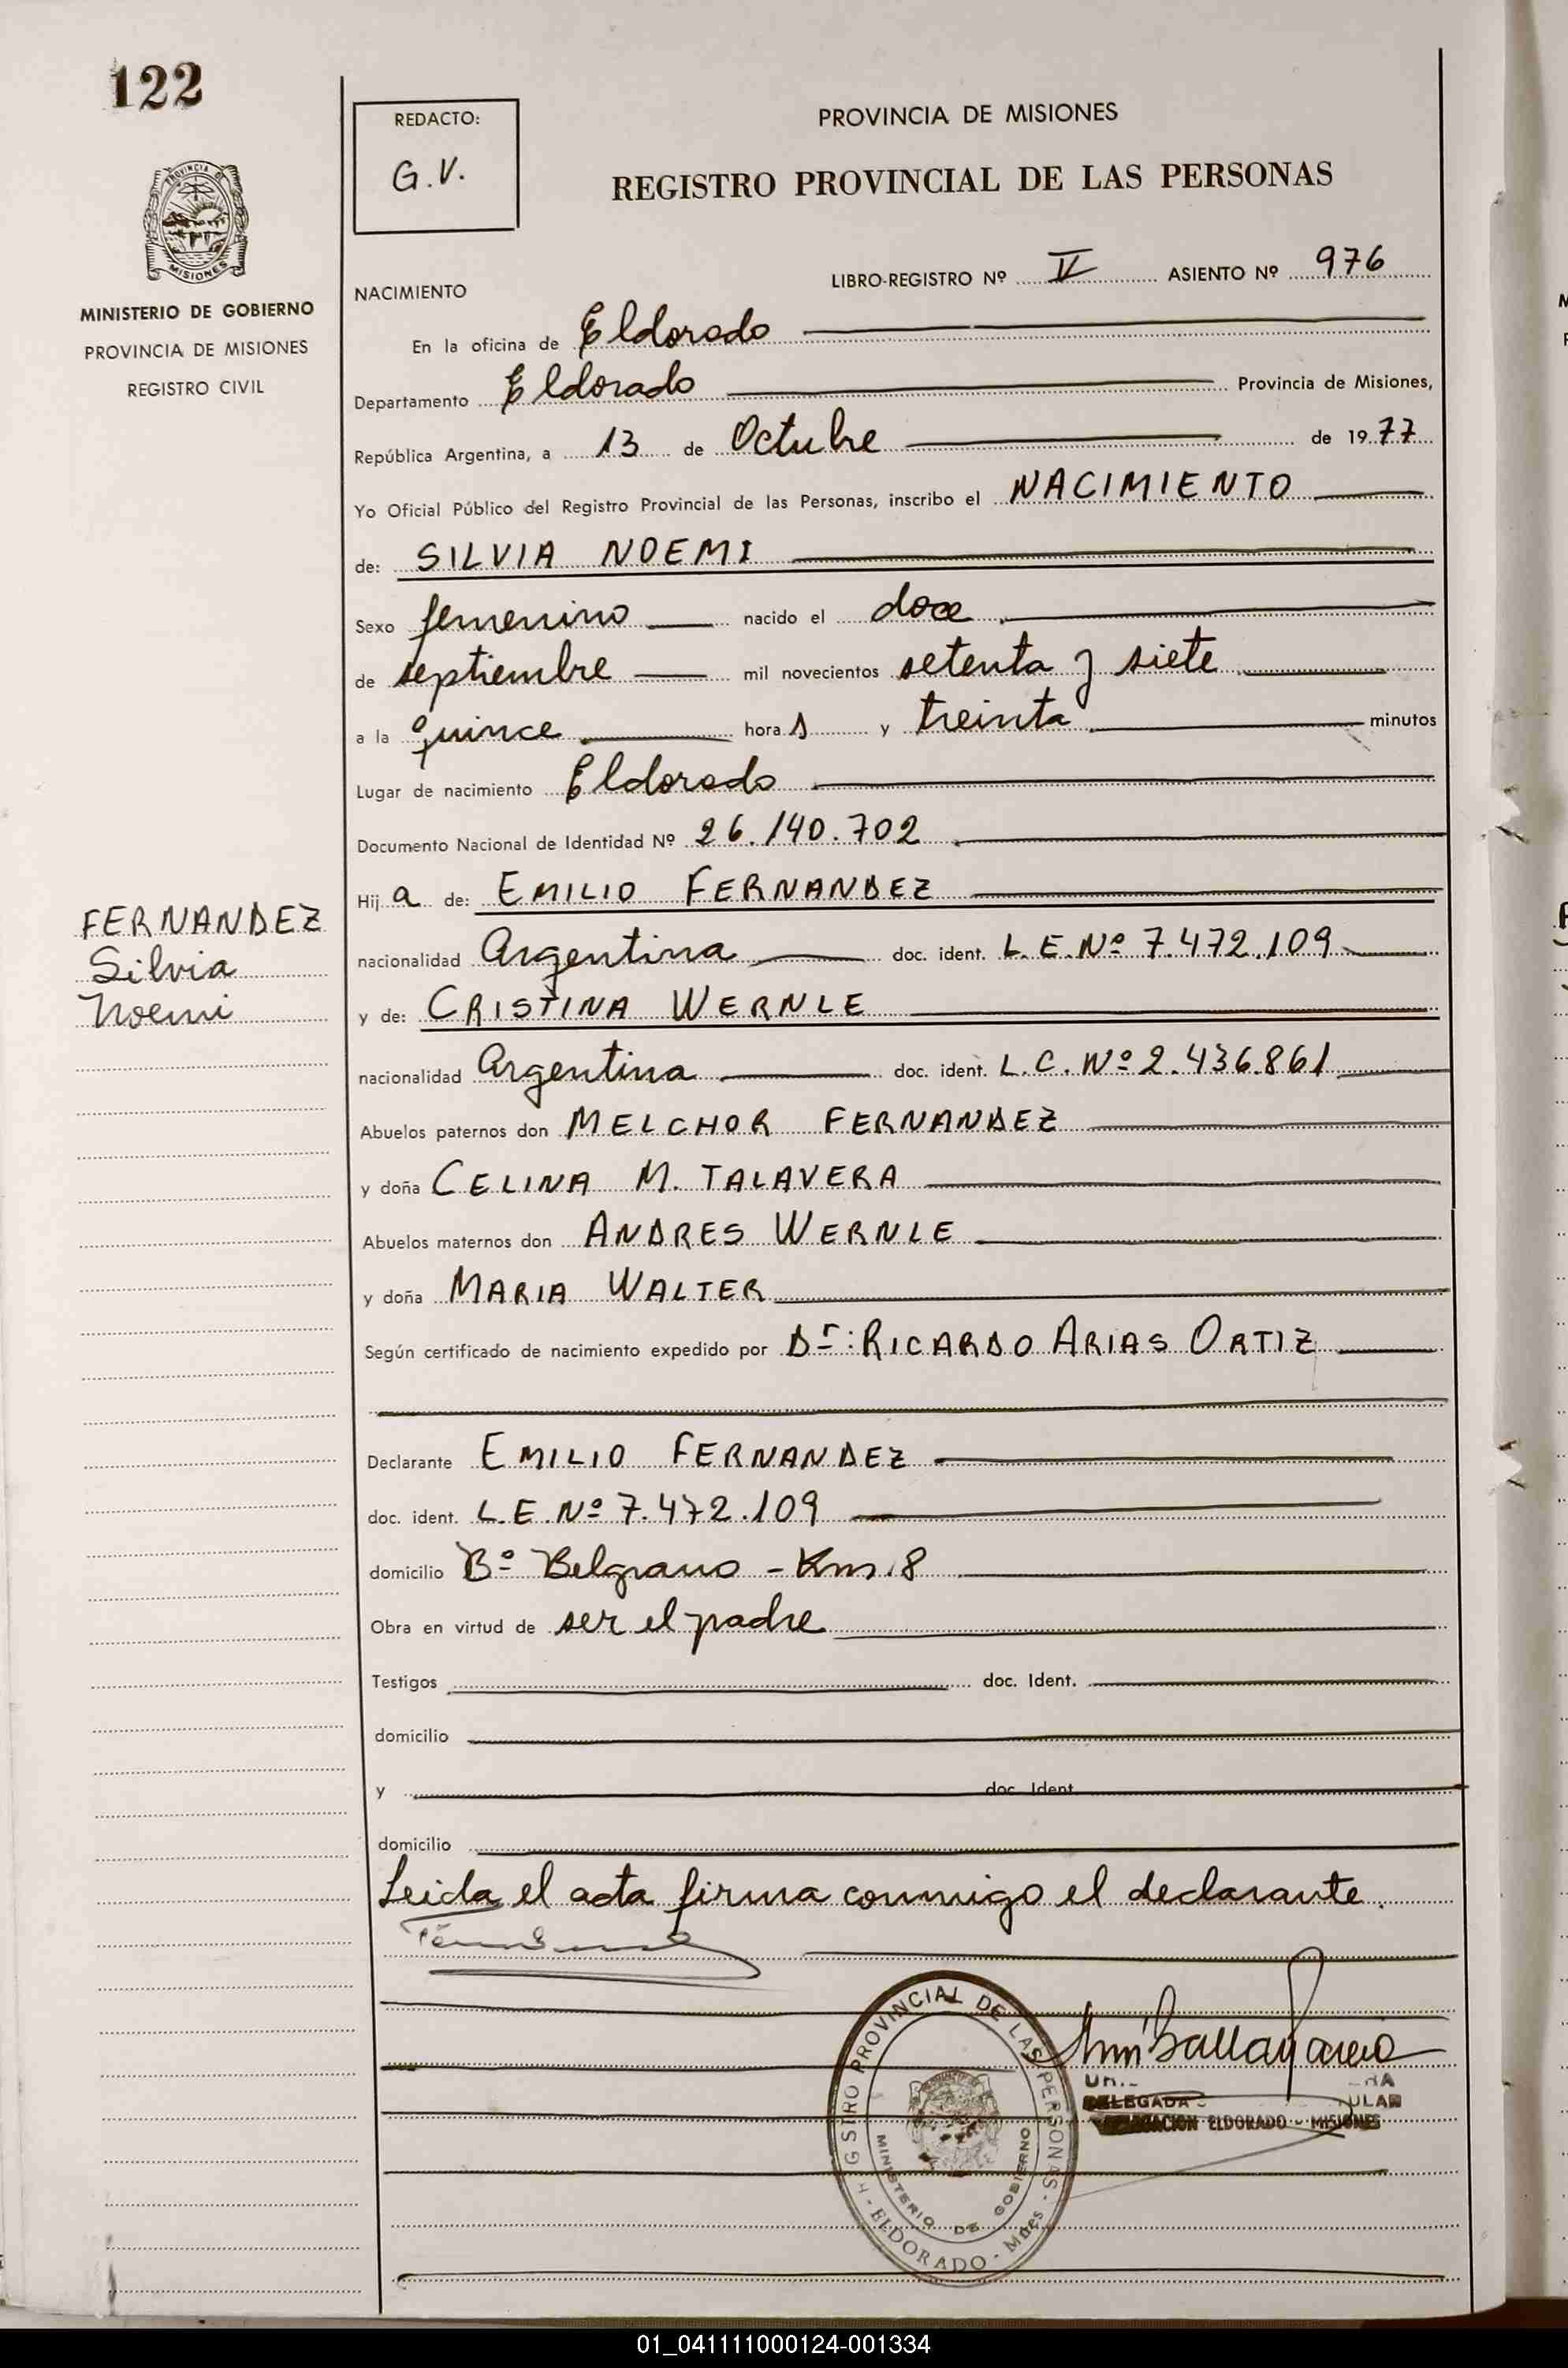 122
REDACTO:
G.V.
PROVINCIA DE MISIONES
REGISTRO PROVINCIAL DE LAS PERSONAS
PROVINCIA DE
MISIONES
MINISTERIO DE GOBIERNO
PROVINCIA DE MISIONES
REGISTRO CIVIL
LIBRO-REGISTRO Nº V ASIENTO Nº 976
NACIMIENTO
En la oficina de Eldorado
Departamento Eldorado Provincia de Misiones,
República Argentina, a 13 de Octubre de 1977
Yo Oficial Público del Registro Provincial de las Personas, inscribo el NACIMIENTO
de: SILVIA NOEMI
Sexo femenino nacido el doce
de septiembre mil novecientos setenta y siete
a la quince hora s y treinta minutos
Lugar de nacimiento Eldorado
Documento Nacional de Identidad Nº 26.140.702
Hij a de: EMILIO FERNANDEZ
FERNANDEZ
Silvia
Noemi
nacionalidad Argentina doc. ident. L.E.Nº 7.472.109
y de: CRISTINA WERNLE
nacionalidad Argentina doc. ident. L.C. Nº 2.436.861
Abuelos paternos don MELCHOR FERNANDEZ
y doña CELINA M. TALAVERA
Abuelos maternos don ANDRES WERNLE
y doña MARIA WALTER
Según certificado de nacimiento expedido por Dr: RICARDO ARIAS ORTIZ
Declarante EMILIO FERNANDEZ
doc. ident. L.E.Nº 7.472.109
domicilio Bº Belgrano - Km. 8
Obra en virtud de ser el padre
Testigos doc. Ident.
domicilio
y doc. Ident.
domicilio
Leida el acta firma conmigo el declarante.
PROVINCIAL DE LAS PERSONAS
MINISTERIO DE GOBIERNO
ELDORADO - Mnes
DELEGADA
ELDORADO - MISIONES
01_041111000124-001334